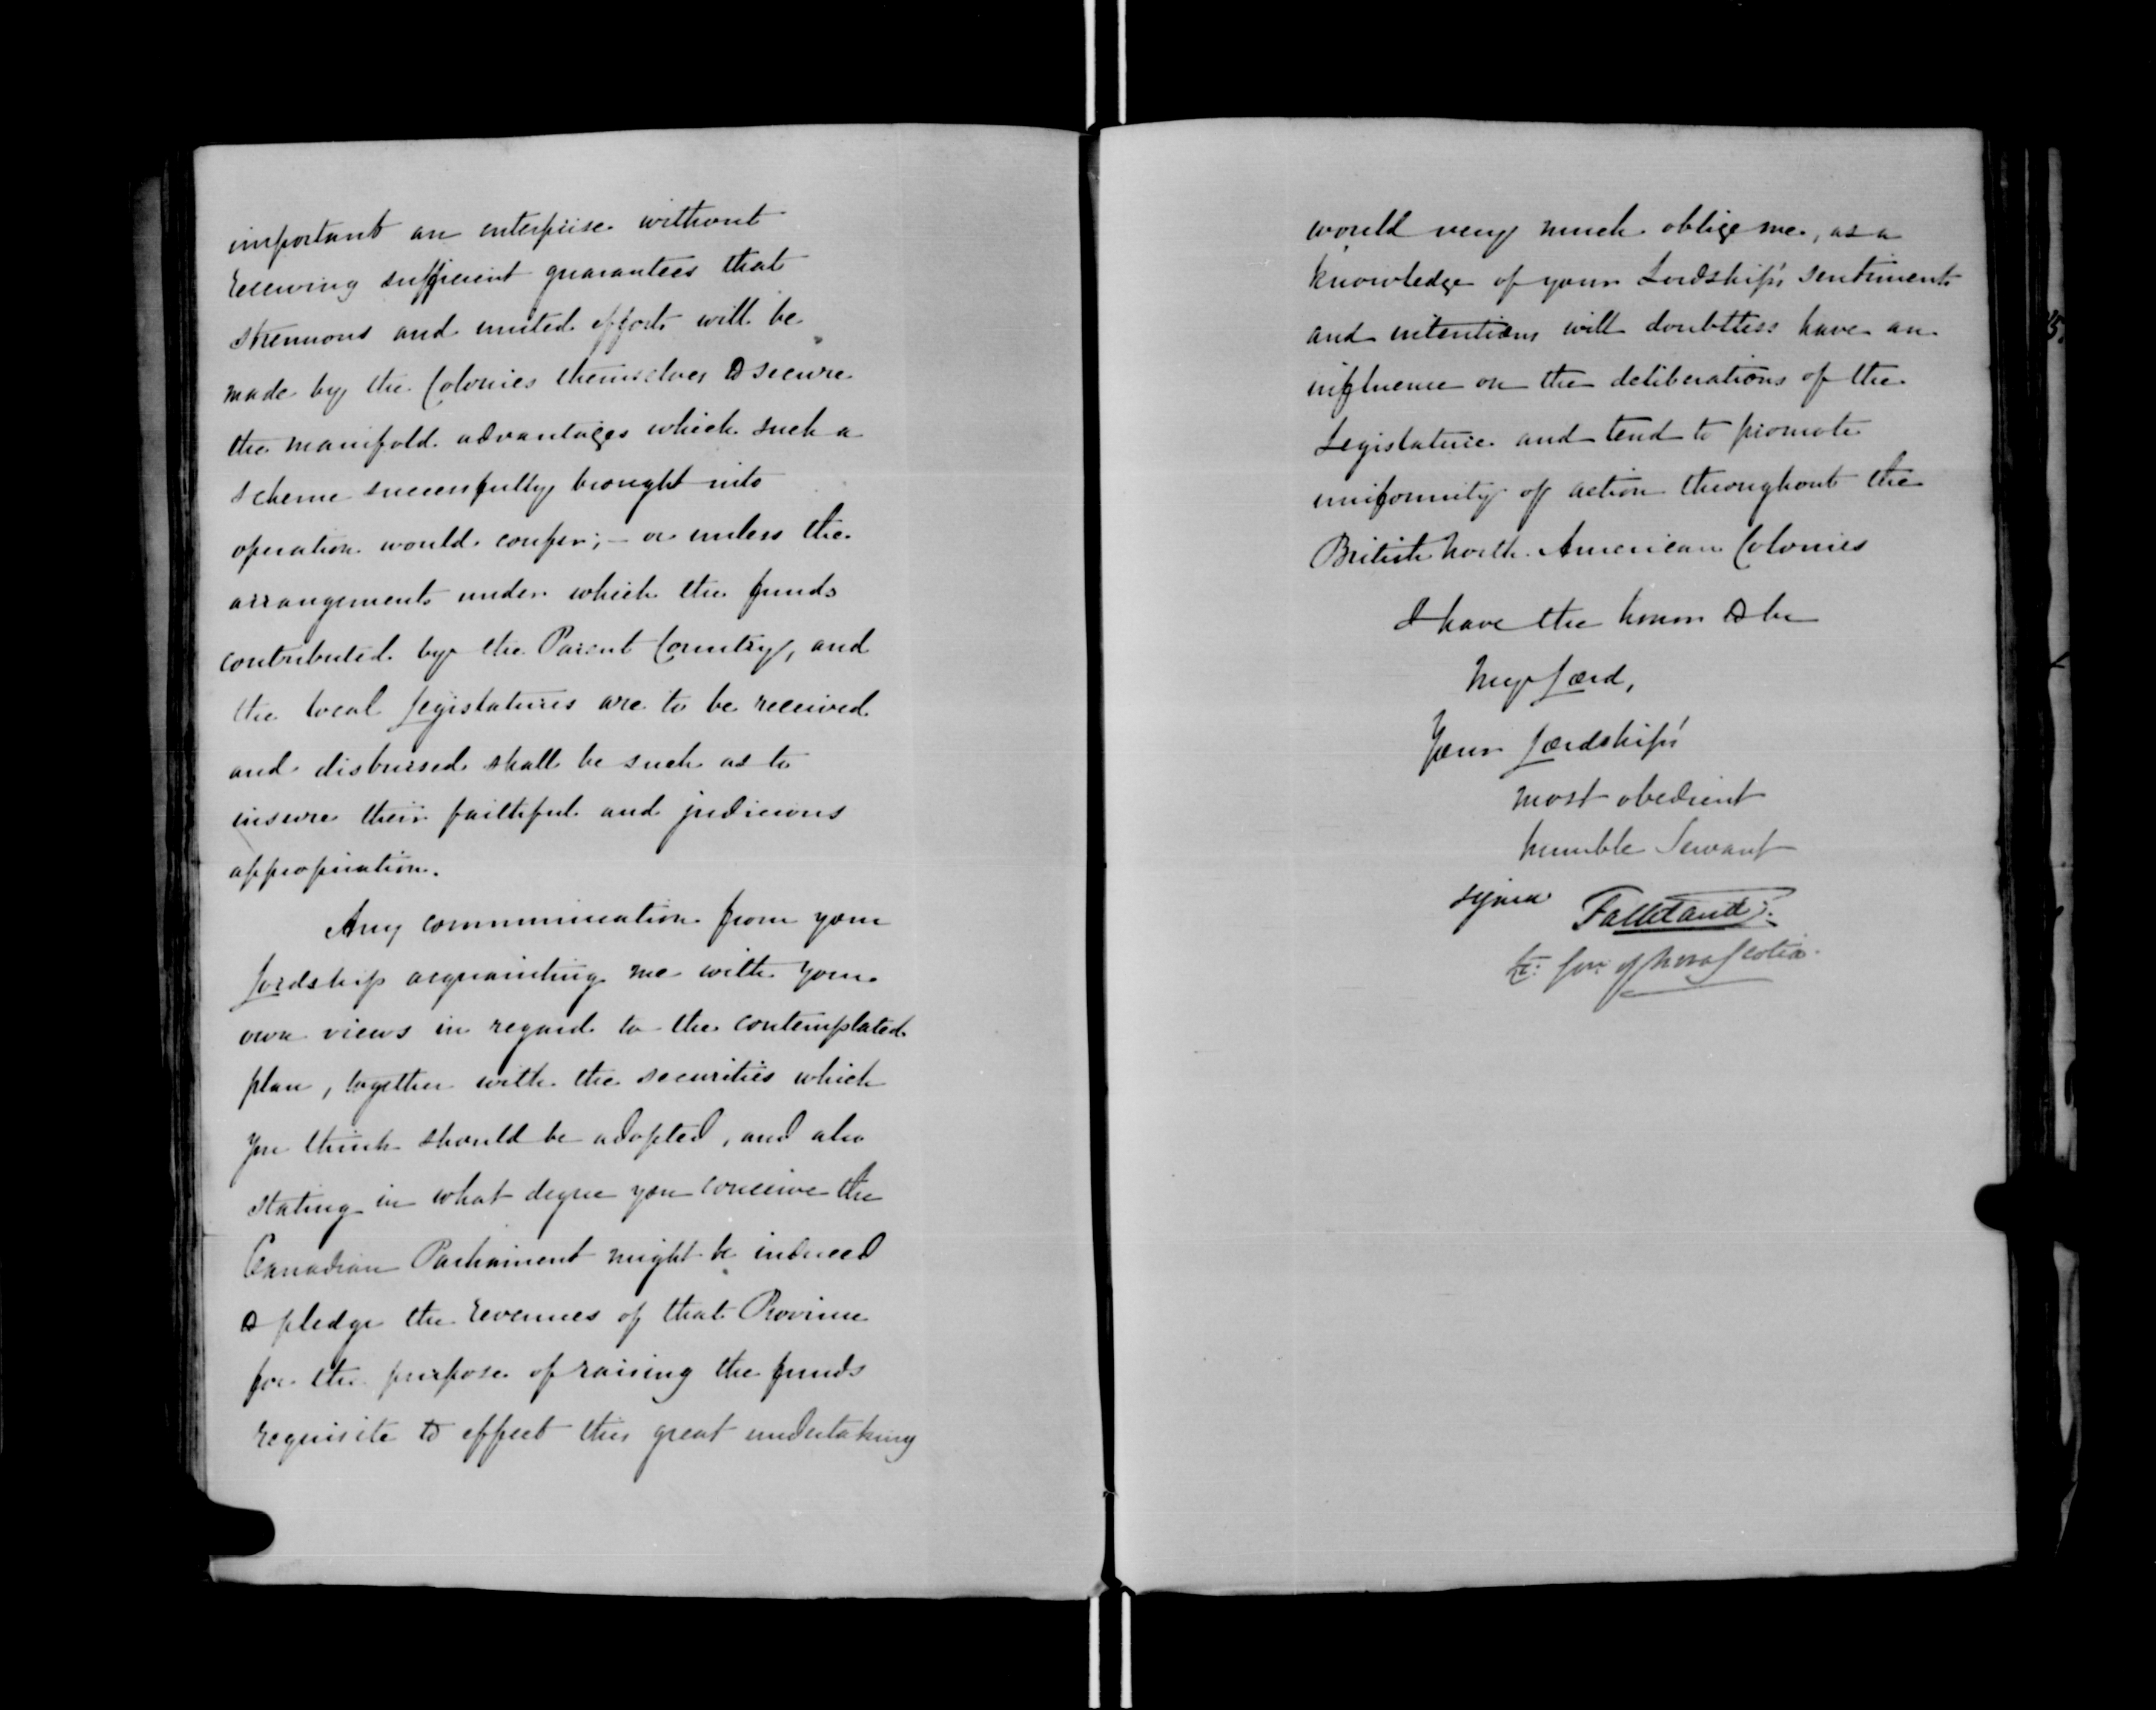 important an enterprise without
receiving sufficient guarantees that
strenuous and united efforts will be
made by the Colonies themselves to secure
the manifold advantages which such a
scheme successfully brought into
operation would confer; – or unless the
arrangements under which the funds
contributed by the Parent Country, and
the local Legislatures are to be received
and disbursed shall be such as to
insure their faithful and judicious
appropriation.
Any communication from your
Lordship acquainting me with your
own views in regard to the contemplated
plan, together with the securities which
you think should be adopted, and also
stating in what degree you conceive the
Canadian Parliament might be induced
to pledge the revenues of that Province
for the purpose of raising the funds
requisite to effect this great undertaking
would very much oblige me, as a
knowledge of your Lordship's sentiments
and intentions will doubtless have an
influence on the deliberations of the
Legislature and tend to promote
uniformity of action throughout the
British North American Colonies
I have the honor to be
My Lord,
Your Lordship's
most obedient
humble Servant
signed Falkland
Lt: Gov: of Nova Scotia